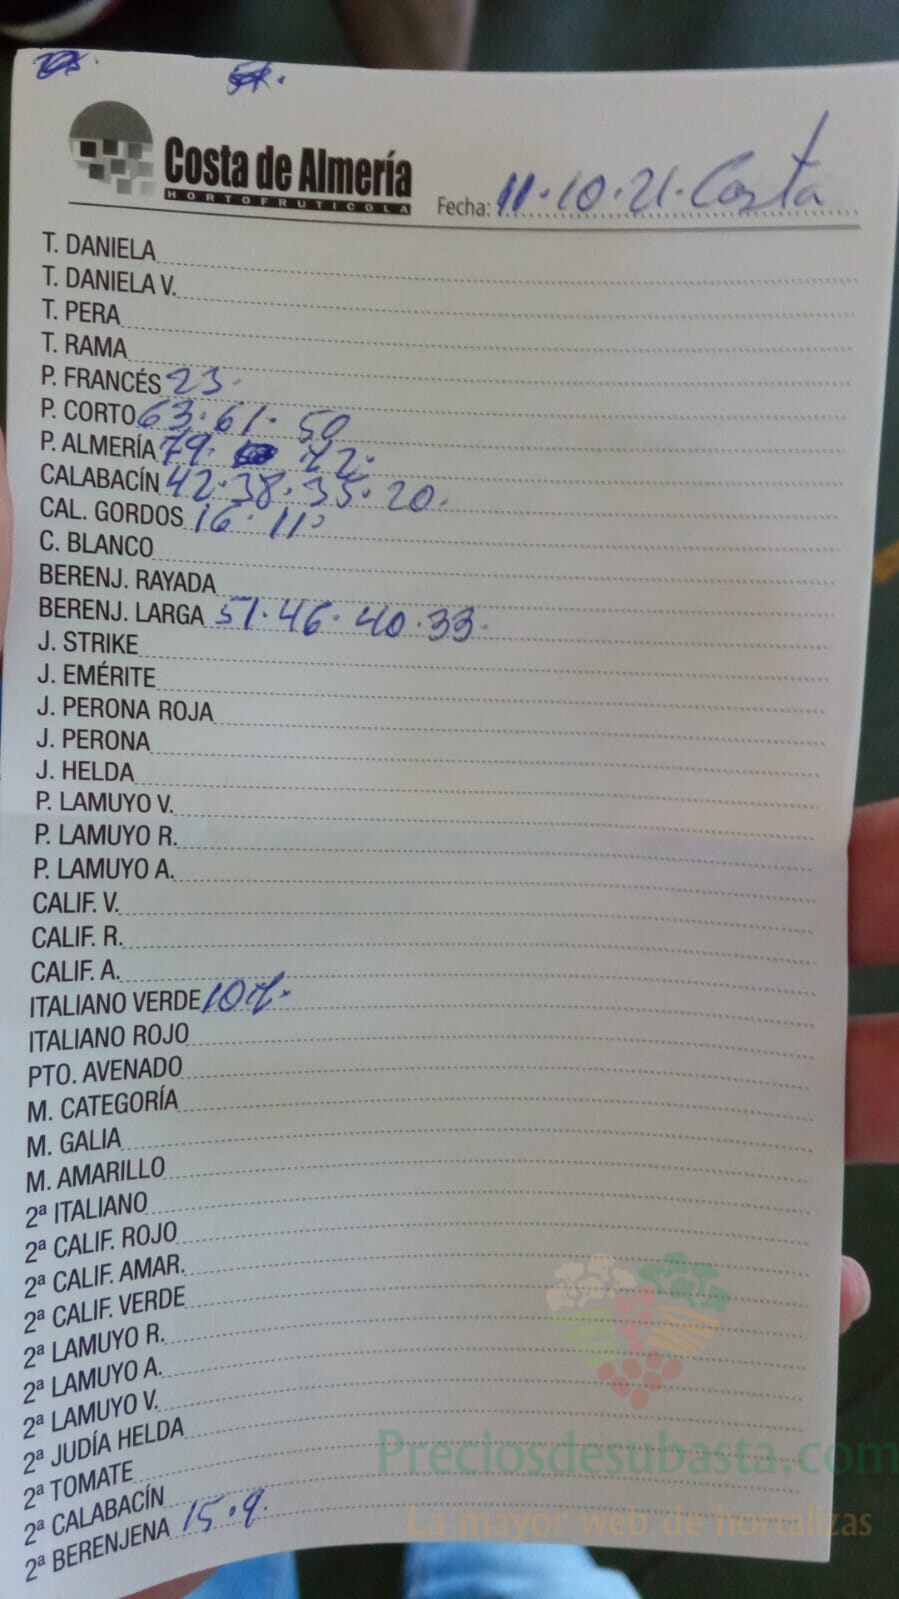 Costa de Almería
HORTOFRUTICOLA
Fecha: 11.10.21. Costa
T. DANIELA
T. DANIELA V.
T. PERA
T. RAMA
P. FRANCÉS 23.
P. CORTO 63. 61. 50
P. ALMERÍA 79. 42.
CALABACÍN 42. 38. 35. 20.
CAL. GORDOS 16. 11.
C. BLANCO
BERENJ. RAYADA
BERENJ. LARGA 51. 46. 40. 33.
J. STRIKE
J. EMÉRITE
J. PERONA ROJA
J. PERONA
J. HELDA
P. LAMUYO V.
P. LAMUYO R.
P. LAMUYO A.
CALIF. V.
CALIF. R.
CALIF. A.
ITALIANO VERDE
ITALIANO ROJO
PTO. AVENADO
M. CATEGORÍA
M. GALIA
M. AMARILLO
2ª ITALIANO
2ª CALIF. ROJO
2ª CALIF. AMAR.
2ª CALIF. VERDE
2ª LAMUYO R.
2ª LAMUYO A.
2ª LAMUYO V.
2ª JUDÍA HELDA
2ª TOMATE
2ª CALABACÍN
2ª BERENJENA 15. 9.
Preciosdesubasta.com
La mayor web de hortalizas